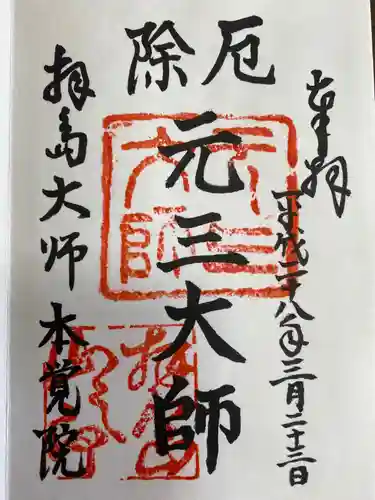 奉拝
平成二十八年三月二十三日
厄除
元三大師
拝島大師 本覚院
元三大師